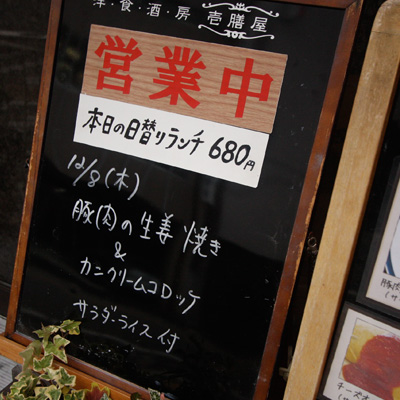 洋・食・酒・房 壱膳屋
営業中
本日の日替りランチ 680円
12/8(木)
豚肉の生姜焼き
&
カニクリームコロッケ
サラダーライス付
豚肉
チーズオ